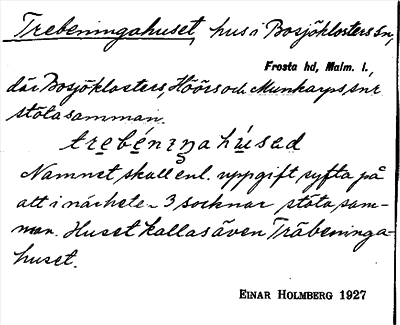 Trebeningahuset, hus i Bosjöklosters sn,
Frosta hd, Malm. l.,
där Bosjöklosters, Höörs och Munkarps snr
stöta samman.
Namnet skall enl. uppgift syfta på
att i närhete- 3 socknar stöta sam-
man. Huset kallas även Träbeninga-
huset.
EINAR HOLMBERG 1927